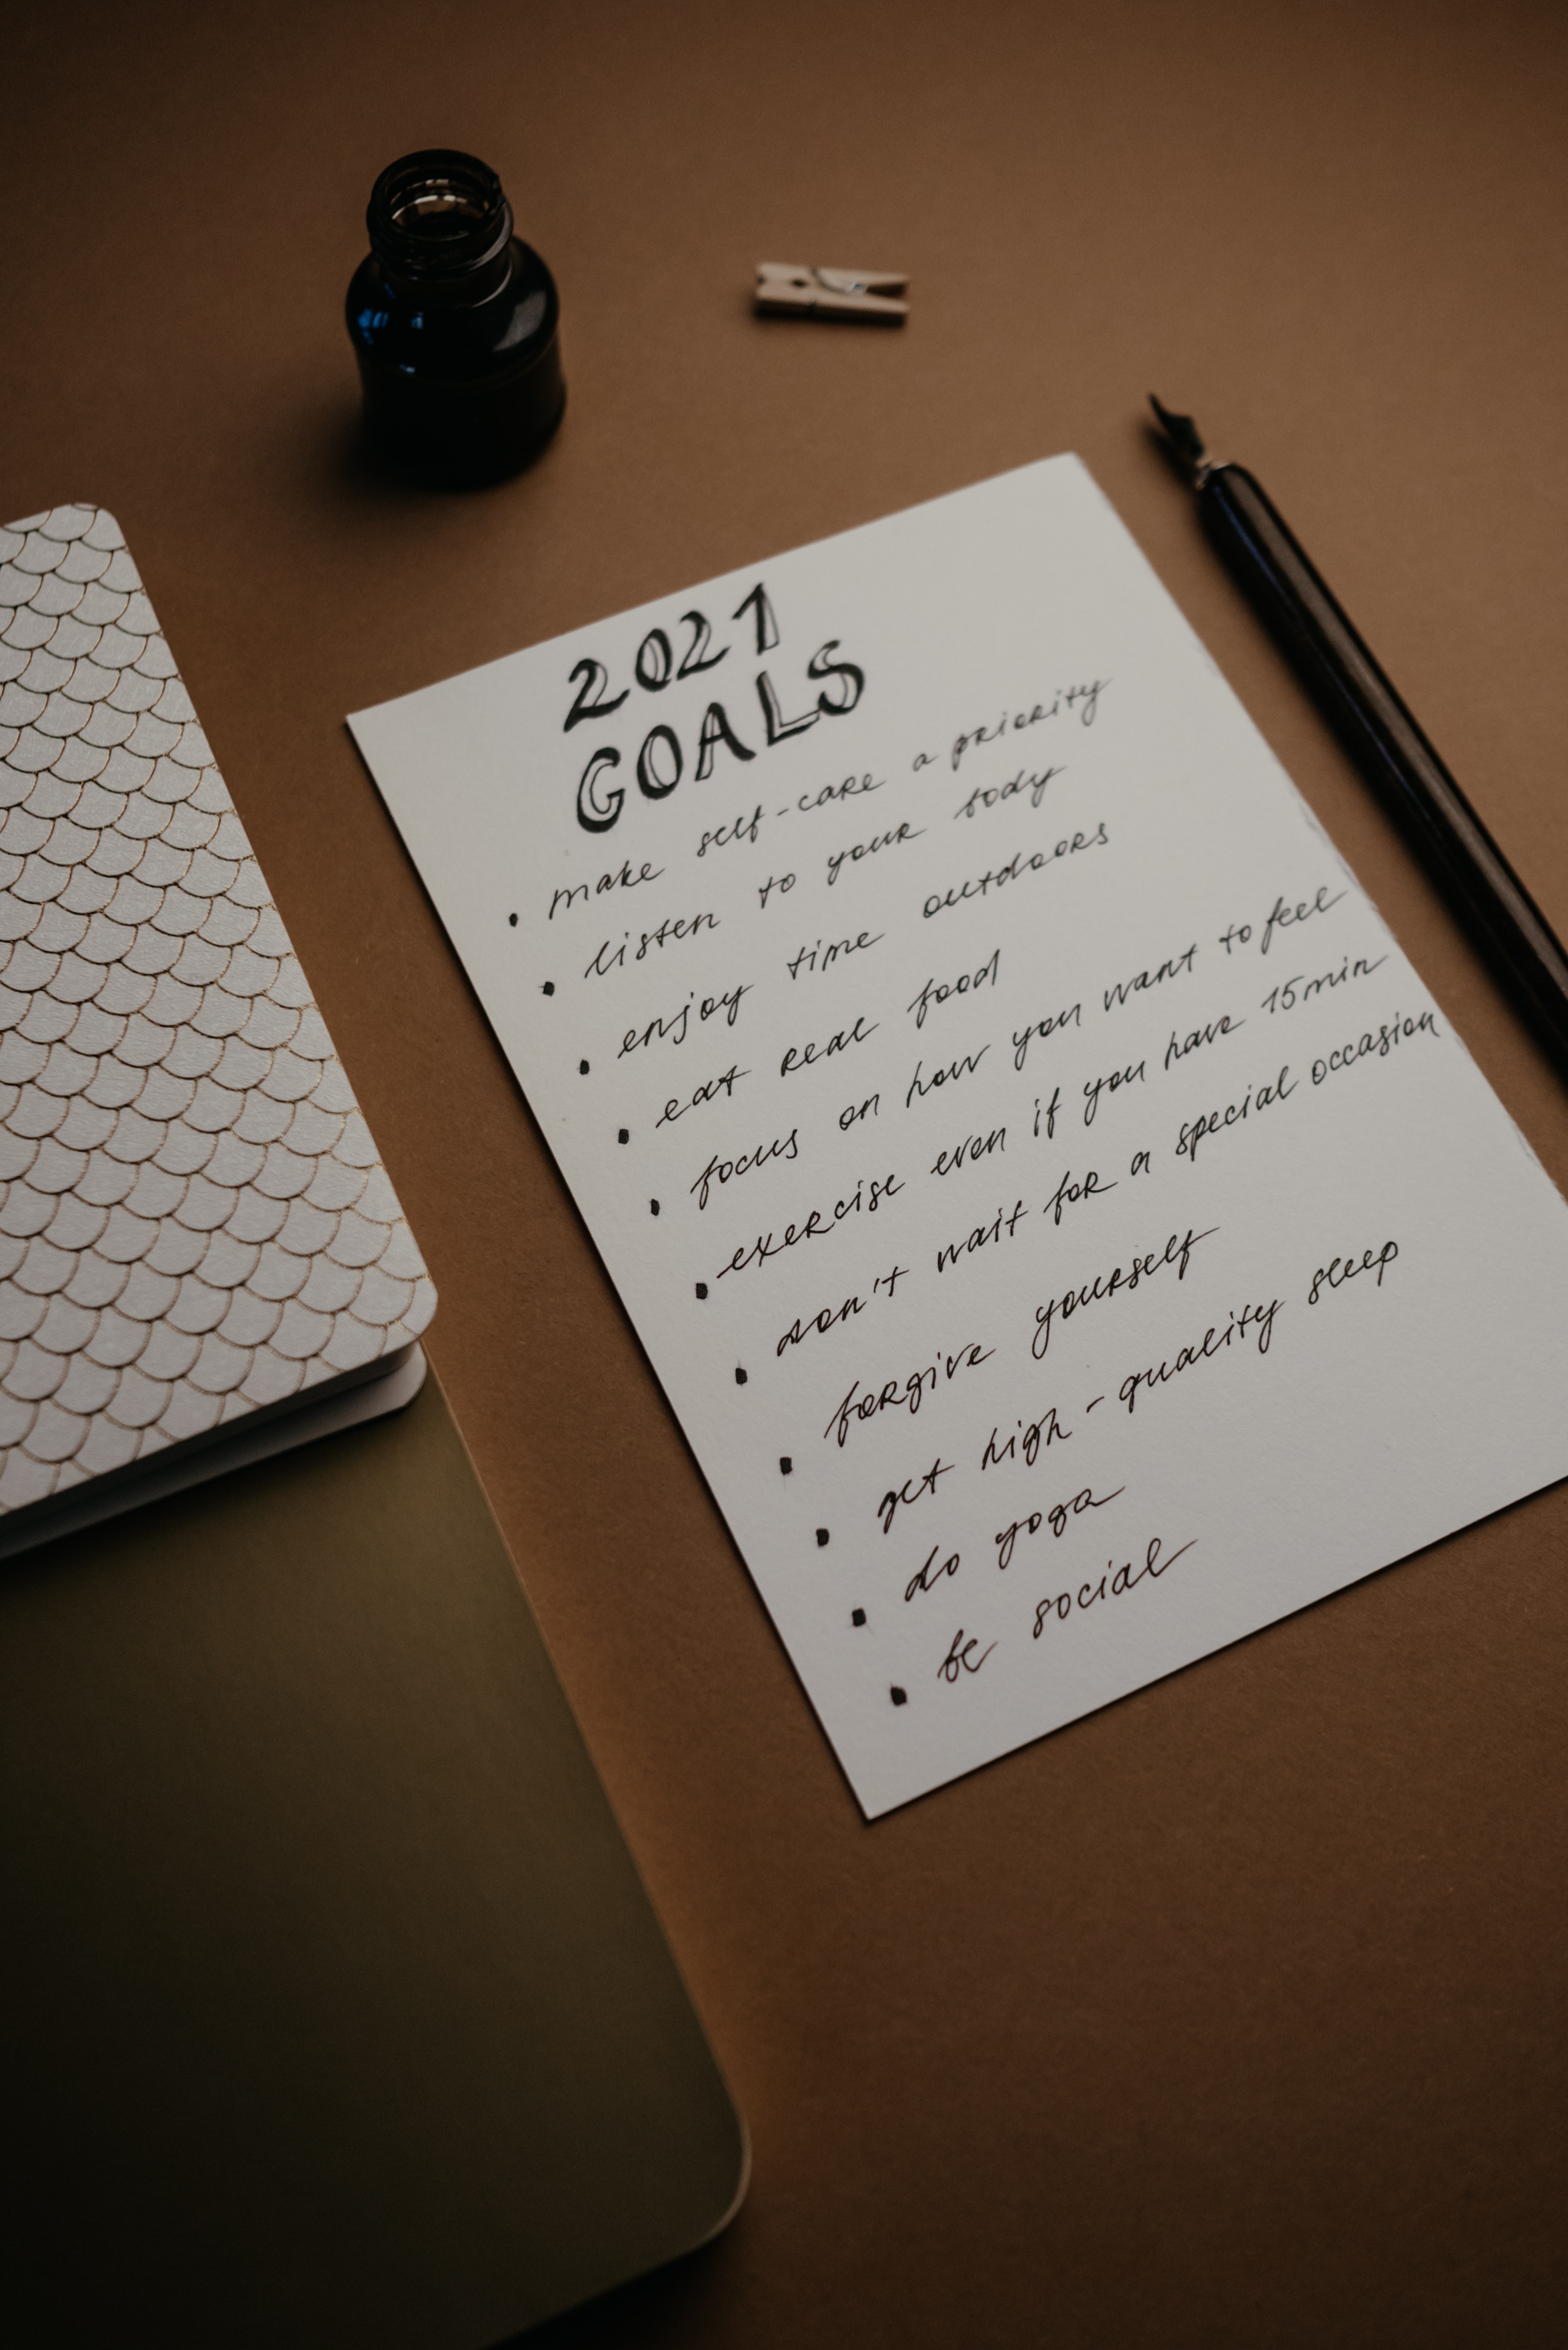 2021
GOALS
• make self-care a priority
• listen to your body
• enjoy time outdoors
• eat real food
• focus on how you want to feel
• exercise even if you have 15min
• don't wait for a special occasion
• forgive yourself
• get high-quality sleep
• do yoga
• be social